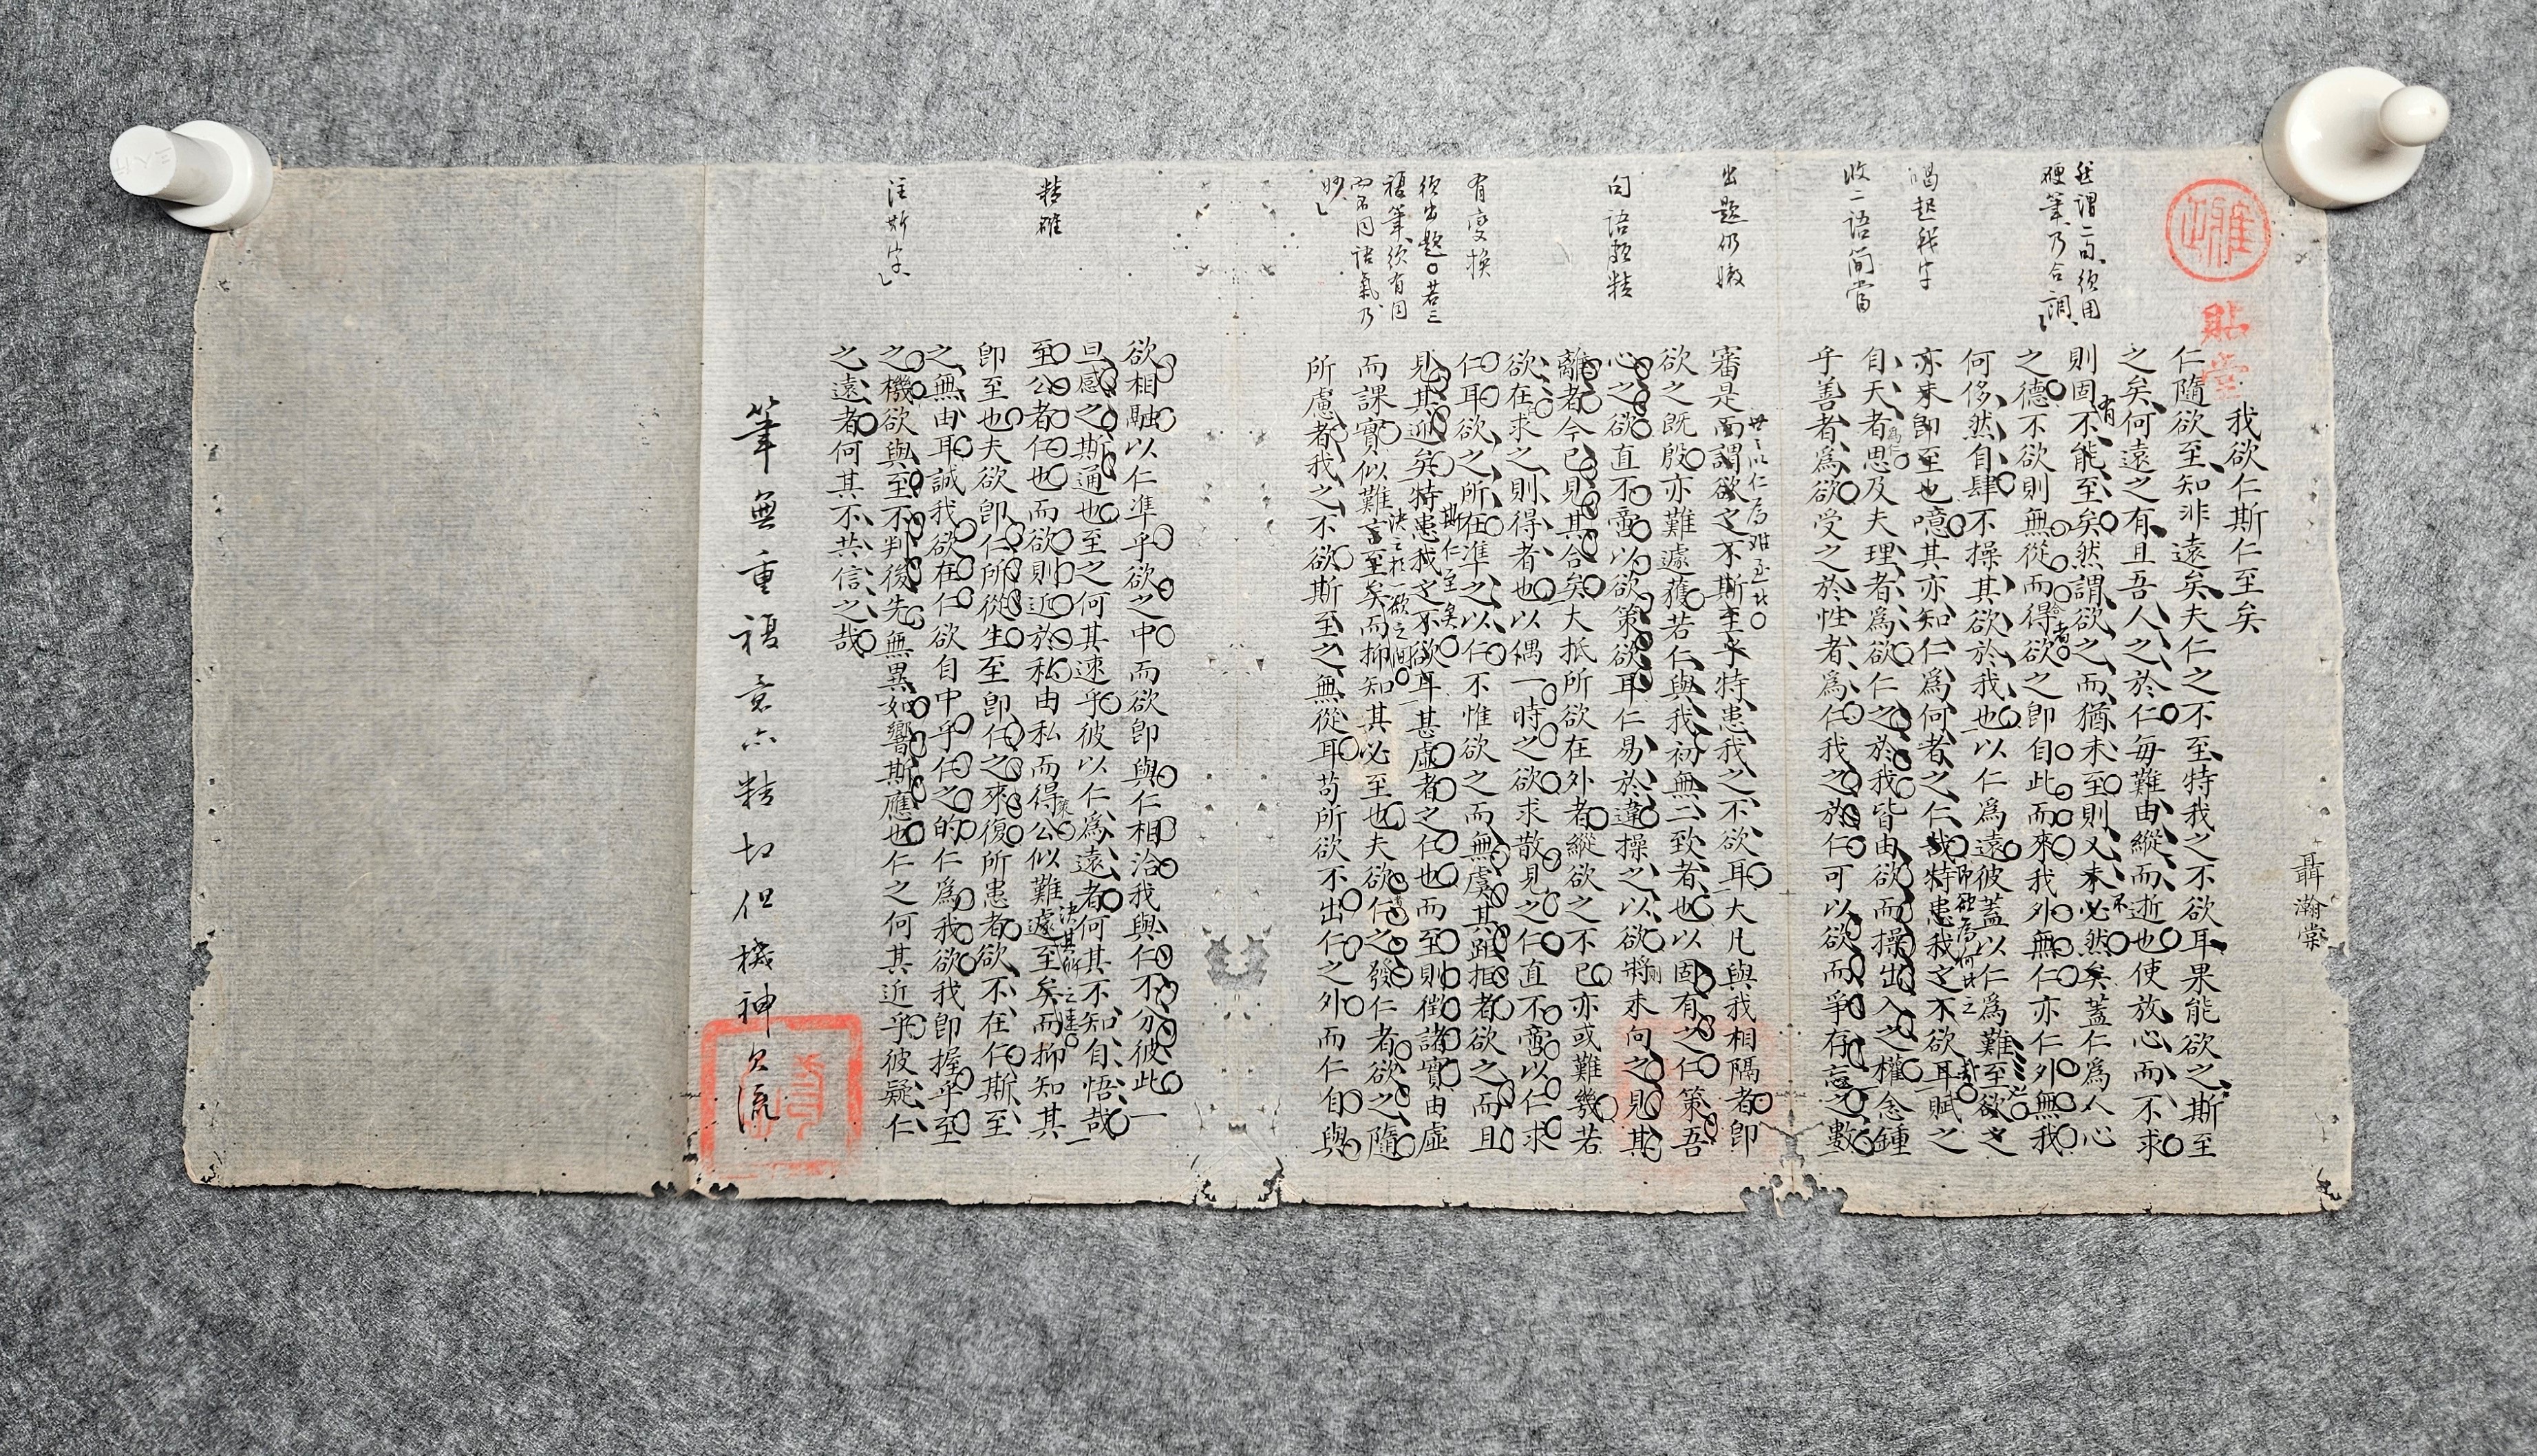 聶瀚棠
雅正
貼堂
我欲仁斯仁至矣
仁隨欲至知非遠矣夫仁之不至特我之不欲耳果能欲之斯至
之矣何遠之有且吾人之於仁每難由縱而逝也使放心而不求
則固不能至矣然謂欲之而猶未至則又未必然矣蓋仁為人心
之德不欲則無從而得欲之即自此而來我外無仁亦仁外無我
何侈然自肆不操其欲於我也以仁為遠彼蓋以仁為難至欲之
亦未即至也噫其亦知仁為何者之仁哉特患我之不欲耳賦之
自天者思及夫理者為欲仁之於我皆由欲而操出入之權念鍾
乎善者為欲受之於性者為仁我之於仁可以欲而爭存忘之數
審是而謂欲之不斯至乎特患我之不欲耳大凡與我相隔者即
欲之既殷亦難遽獲若仁與我初無二致者也以固有之仁策吾
心之欲直不啻以欲策欲耳仁易於違操之以欲將未向之見其
離者今已見其合矣大抵所欲在外者縱欲之不已亦或難幾若
欲在求之則得者也以偶一時之欲求散見之仁直不啻以仁求
仁耳欲之所在準之以仁不惟欲之而無虞其距拒者欲之而且
見其迎矣特患我之不欲耳甚虛者之仁也而至則徵諸實由虛
而課實似難言至矣而抑知其必至也夫欲仁之發仁者欲之隨
所慮者我之不欲斯至之無從耳苟所欲不出仁之外而仁自與
欲相融以仁準乎欲之中而欲即與仁相洽我與仁不分彼此一
旦感之斯通也至之何其速乎彼以仁為遠者何其不知自悟哉
至公者仁也而欲則近於私由私而得公似難遽至矣而抑知其
即至也夫欲即仁所從生至即仁之來復所患者欲不在仁斯至
之無由耳誠我欲在仁欲自中乎仁之的仁為我欲我即握乎至
之機欲與至不判後先無異如響斯應也仁之何其近乎彼疑仁
之遠者何其不共信之哉
筆無重複意亦精切但機神欠流
我謂二句須用
硬筆乃合調
喝起我字
收二語簡當
出題仍嫩
句語頗精
有變換
須出題若三
複筆須有同
而不同語氣乃
妙
精確
注斯字